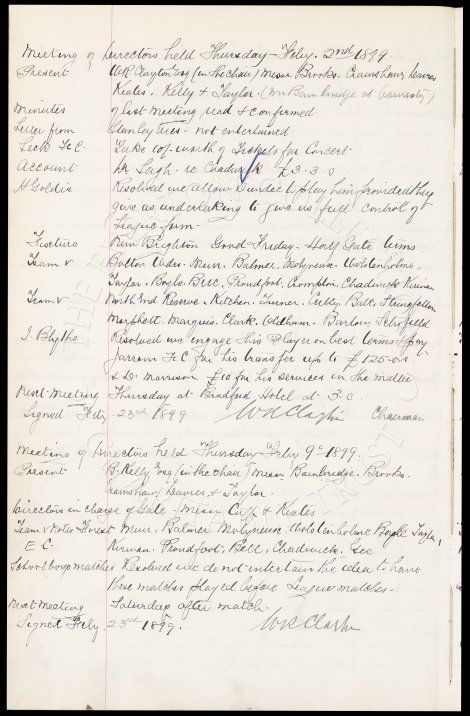 Meeting of Directors held Thursday Feby. 2nd 1899
Present W.R. Clayton Esq (in the chair) Messrs Brooks. Crawshaw, Davies
Keates. Kelly & Taylor. (Mr Bainbridge at
Minutes of last Meeting read & confirmed
Letter from Stanley tres- not entertained
Leek F.C. Take 10/- worth of Tickets for Concert.
Account Dr Leigh. re Chadwick £3-3-0
H Goldie Resolved we allow Dundee to play him provided they
give us undertaking to give us full control of
League form.
Fixture New Brighton Good-Friday. Half Gate terms
Team v Bolton Wdrs. Muir. Balmer, Molyneux. Wolstenholme,
Taylor. Boyle. Bell, Proudfoot, Crompton, Chadwick Kirwan
Team v North End Reserve. Kitchen. Turner. Bell, Stringfellow
Marquis. Clark, Oldham. Barlow, Schofield
J. Blythe Resolved we engage this player on best terms & pay
Jarrow F C for his transfer up to £125-0-0
& D. Morrison £10 for his services in the matter
Next-Meeting Thursday at Bradford Hotel at 3.0.
Signed Feby 23rd 1899 W R Clayton Chairman
Meeting of Directors held Thursday Feby 9th 1899.
Present B. Kelly Esq (in the chair) Messrs Bainbridge. Brooks.
Crawshaw, Davies & Taylor.
Directors in charge of Gate. Messrs Cuff & Keates
Team v Notts Forest Muir. Balmer. Molyneux Wolstenholme Boyle Taylor,
E C. Kirwan. Proudfoot, Bell, Chadwick. Gee
Schoolboys matches Resolved we do not entertain the idea to have
these matches played before League matches.
Next Meeting Saturday after match.
Signed Feby 23rd 1899. W R Clayton